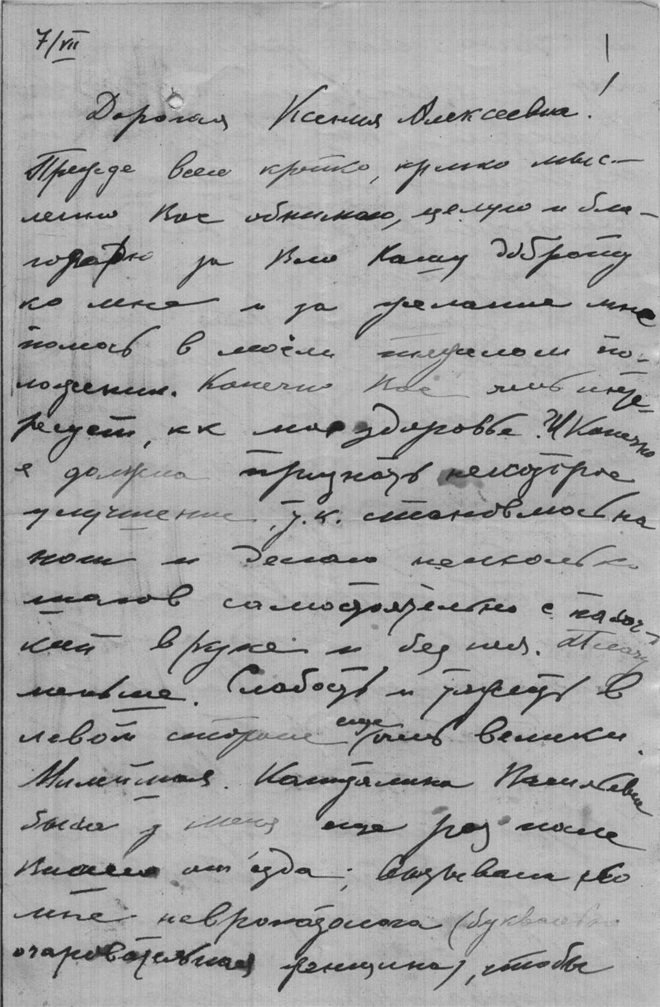 7/VII
Дорогая Ксения Алексеевна!
Прежде всего крепко, крепко мыс-
ленно Вас обнимаю, целую и бла-
годарю за Вашу доброту
ко мне и за желание мне
помочь в моём тяжелом по-
ложении. Конечно Вас инте-
ресует, как мое здоровье. Конечно
я должна признать некоторое
улучшение, т.к. становлюсь на
ноги и делаю несколько
шагов самостоятельно с палоч-
кой в руке и без нея. Плачу
меньше. Слабость и тяжесть в
левой стороне еще очень велики.
Милейшая Капитолина Васильевна
была у меня еще раз после
Вашего отъезда; вызывала ко
мне невропатолога (буквально
очаровательная женщина), чтобы